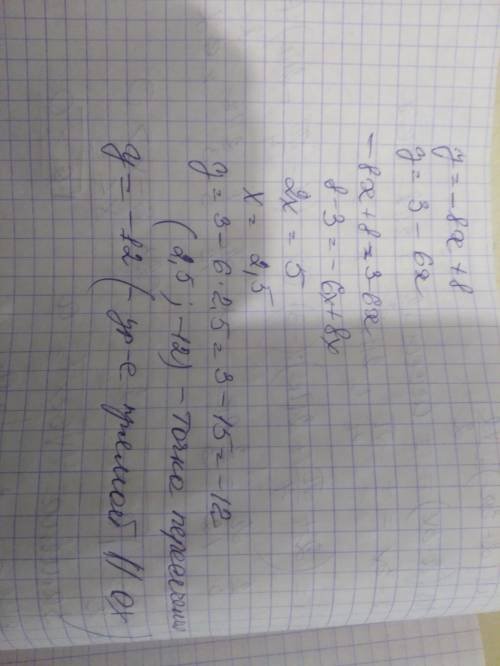 y = -8x + 8
y = 3 - 6x
-8x + 8 = 3 - 6x
8 - 3 = -6x + 8x
2x = 5
x = 2,5
y = 3 - 6·2,5 = 3 - 15 = -12
(2,5; -12) - точка пересечения
y = -12 (- ур-е прямой || Ox)